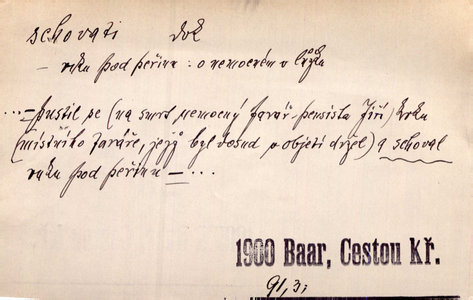 schovati dok
– ruku pod peřinu : o nemocném v lůžku
... – pustil se (na smrt nemocný farář-pensista Jiří) krku
(místního faráře, jejž byl dosud v objetí držel) a schoval
ruku pod peřinu – ...
1900 Baar, Cestou Kř.
91, 3;